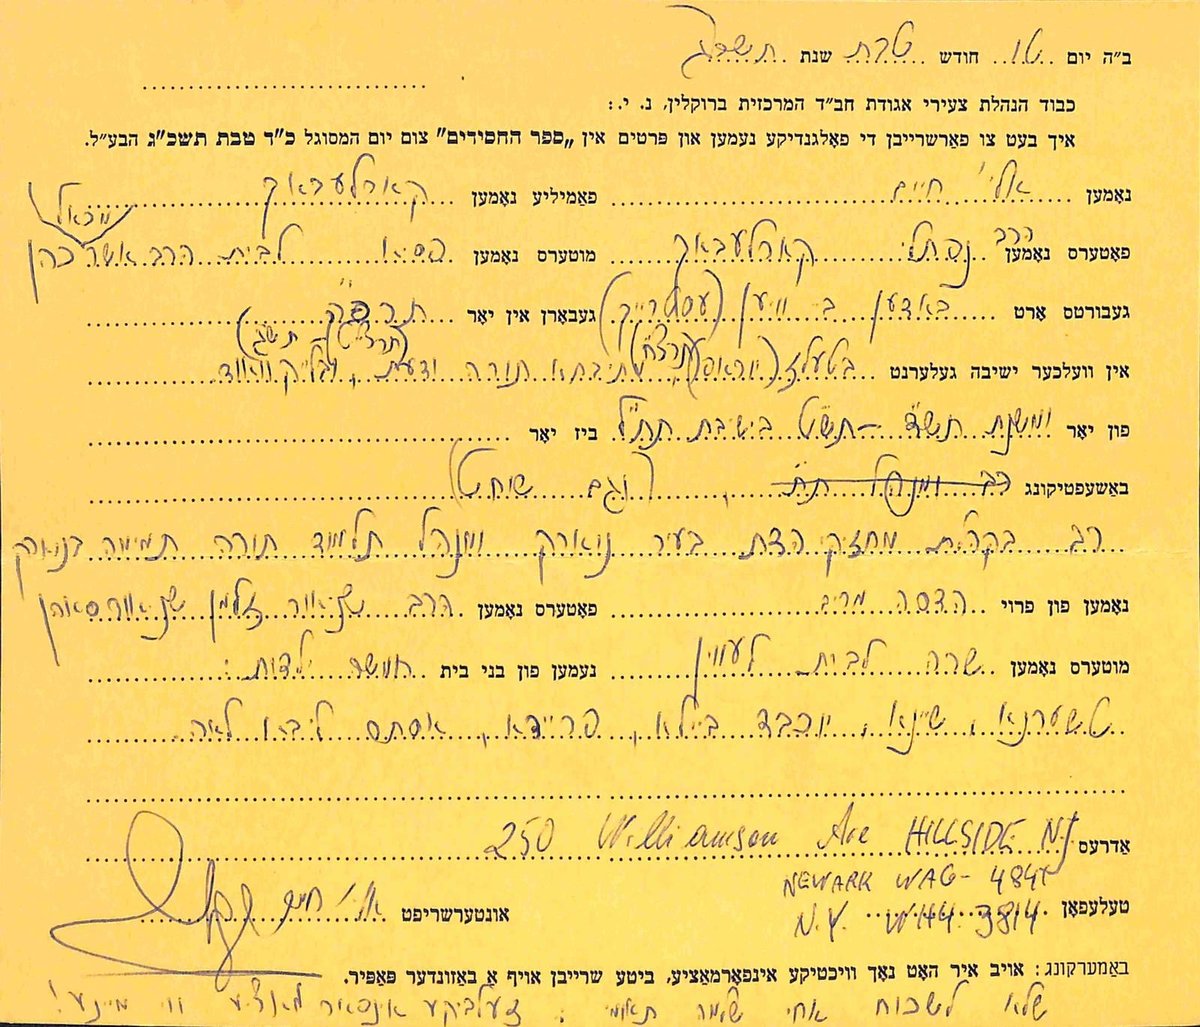 ב״ה יום טו חודש טבת שנת תשכג
כבוד הנהלת צעירי אגודת חב״ד המרכזית ברוקלין, נ. י.:
איך בעט צו פאַרשרייבן די פאָלגנדיקע נעמען און פרטים אין „ספר החסידים" צום יום המסוגל כ"ד טבת תשכ"ג הבע״ל.
נאָמען אלי' חיים פאַמיליע נאָמען קארליבאך
פאָטערס נאָמען הרב נפתלי קארליבאך מוטערס נאָמען פסיא לבית הרב אשר מיכאל כהן
געבורטס אָרט באדען ביי וויען (עסטרייך) געבאָרן אין יאָר תרפ"ה
אין וועלכער ישיבה געלערנט בטעלז (יוראפ) (תרצ"ט – תש"ג) מתיבתא תורה ודעת, ובלייקוואוד
פון יאָר ומשנת תש"ד – תש"ט בישיבת תת"ל ביז יאָר
באַשעפטיקונג רב ומנהל ת"ת (וגם שוחט)
רב בקהלת מחזיקי הדת בעיר נוארק ומנהל תלמוד תורה תמימה בנוארק
נאָמען פון פרוי הדסה מרים פאָטערס נאָמען הרב שניאור זלמן שניאורסאהן
מוטערס נאָמען שרה לבית לעווין נעמען פון בני בית חמשה ילדות:
טשערנא, שיינא, יוכבד ביילא, פריידא, אסתר ליבא לאה
אַדרעס 250 Williamson Ave HILLSIDE N.J
טעלעפאָן NEWARK WAG- 484
N.Y. WH4-3814
אונטערשריפט אלי' חיים
באַמערקונג: אויב איר האָט נאָך וויכטיקע אינפאָרמאַציע, ביטע שרייבן אויף אַ באַזונדער פּאַפּיר.
שלא לשכוח אחי שלמה תאומי: זעלביקע אינפארמאציע ווי מיינע!